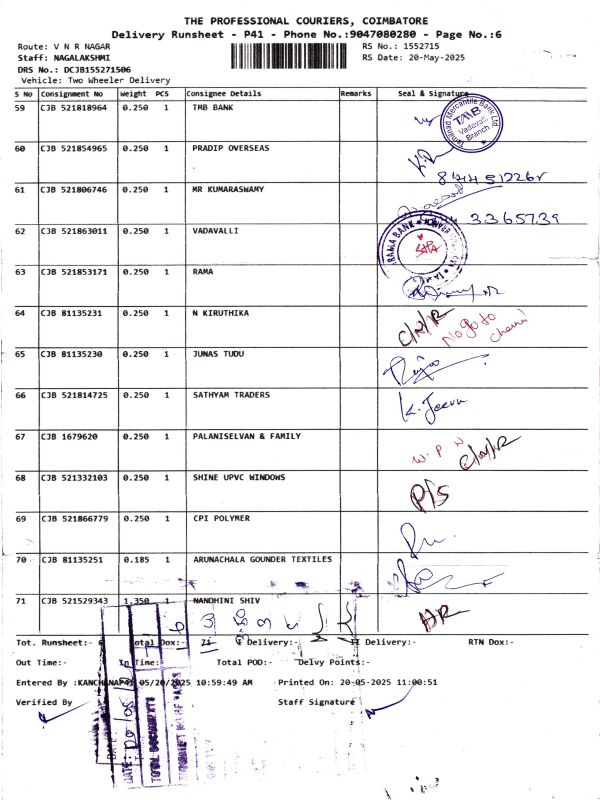 THE PROFESSIONAL COURIERS, COIMBATORE
Delivery Runsheet - P41 - Phone No.:9047080280 - Page No.:6
Route: V N R NAGAR RS No.: 1552715
Staff: NAGALAKSHMI RS Date: 20-May-2025
DRS No.: DCJB155271506
Vehicle: Two Wheeler Delivery
S No Consignment No Weight PCS Consignee Details Remarks Seal & Signature
59 CJB 521818964 0.250 1 TMB BANK
TMB Vadavalli Branch
60 CJB 521854965 0.250 1 PRADIP OVERSEAS
61 CJB 521806746 0.250 1 MR KUMARASWAMY
3365739
62 CJB 521863011 0.250 1 VADAVALLI
63 CJB 521853171 0.250 1 RAMA
64 CJB 81135231 0.250 1 N KIRUTHIKA C/N/R
65 CJB 81135230 0.250 1 JUNAS TUDU
66 CJB 521814725 0.250 1 SATHYAM TRADERS K. Jeeva
67 CJB 1679620 0.250 1 PALANISELVAN & FAMILY W.P.N C/N/R
68 CJB 521332103 0.250 1 SHINE UPVC WINDOWS P/S
69 CJB 521866779 0.250 1 CPI POLYMER
70 CJB 81135251 0.185 1 ARUNACHALA GOUNDER TEXTILES
71 CJB 521529343 1.350 1 NANDHINI SHIV HR
Tot. Runsheet:- Total Dox:- 71 I Delivery:- II Delivery:- RTN Dox:-
Out Time:- In Time: Total POD:- Delvy Points:-
Entered By :KANCHANAP41 05/20/2025 10:59:49 AM Printed On: 20-05-2025 11:00:51
Verified By Staff Signature
DATE:
TOTAL DOCUMENTS